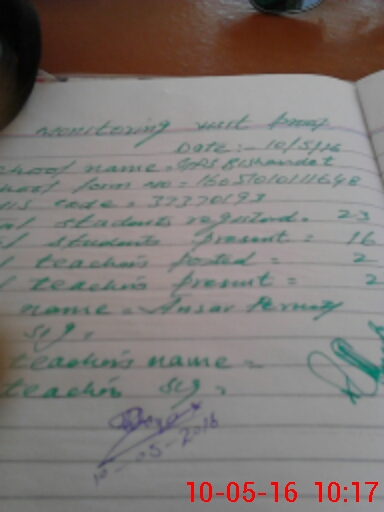 Monitoring visit proof
Date :- 10/5/16
chool name = GPS Bishandot
hool form no = 16051010111648
IS code = 37370193
al students registerd = 23
l students present = 16
l teachers posted = 2
l teachers present = 2
name = Ansar Pervaz
sig =
teachers name =
teachers sig =
10-05-2016
10-05-16 10:17